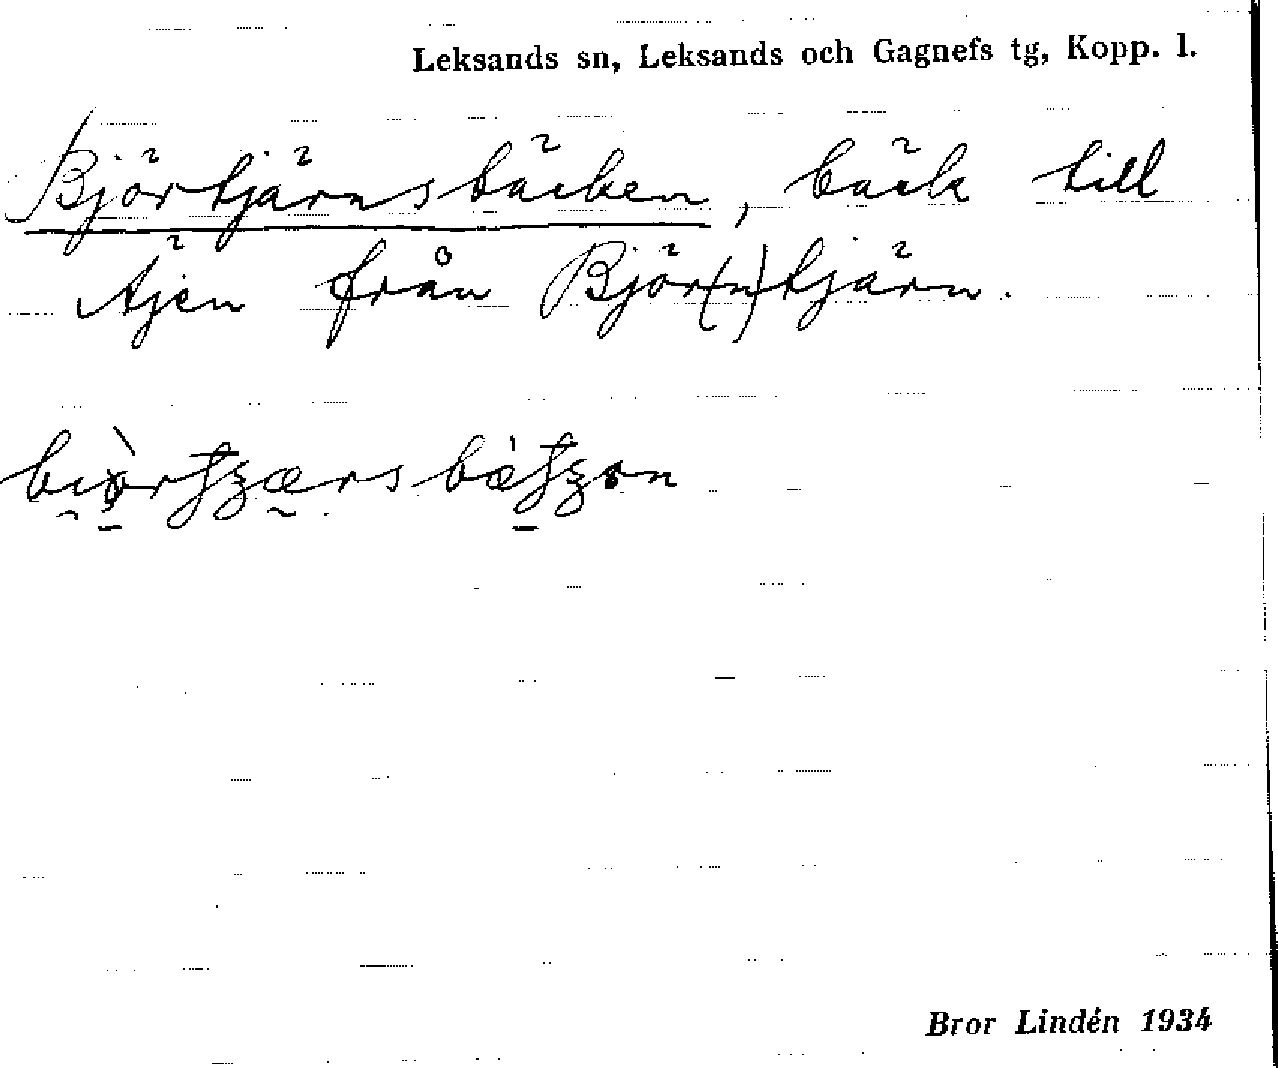 Leksands sn, Leksands och Gagnefs tg, Kopp. l.
Björtjärnsbäcken, bäck till
från Björ(n)tjärn.
Bror Lindén 1934